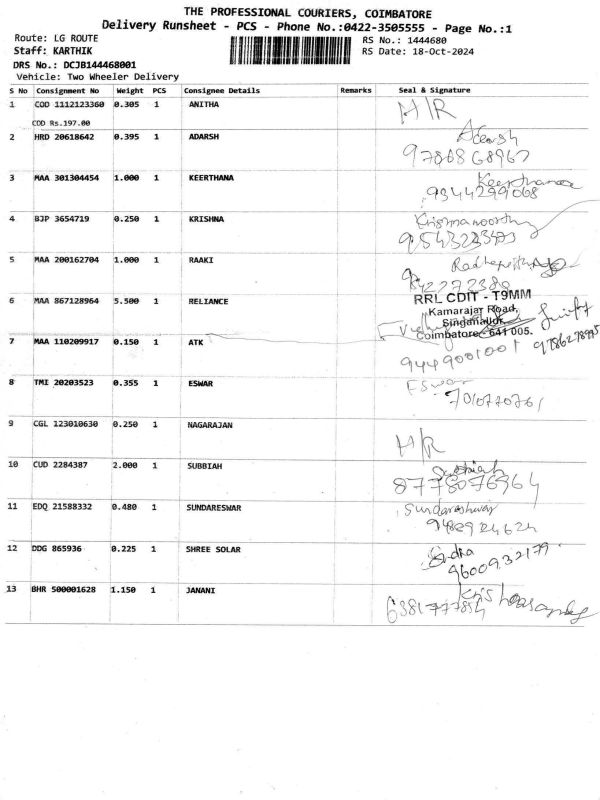 THE PROFESSIONAL COURIERS, COIMBATORE
Delivery Runsheet - PCS - Phone No.:0422-3505555 - Page No.:1
Route: LG ROUTE RS No.: 1444680
Staff: KARTHIK RS Date: 18-Oct-2024
DRS No.: DCJB144468001
Vehicle: Two Wheeler Delivery
S No Consignment No Weight PCS Consignee Details Remarks Seal & Signature
1 COD 1112123360 0.305 1 ANITHA H/R
COD Rs.197.00
2 HRD 20618642 0.395 1 ADARSH Adarsh
3 MAA 301304454 1.000 1 KEERTHANA Keerthanaa
9344299068
4 BJP 3654719 0.250 1 KRISHNA Krishnamoorthy
5 MAA 200162704 1.000 1 RAAKI
6 MAA 867128964 5.500 1 RELIANCE RRL CDIT - T9MM
Kamarajar Road,
Singanallur,
Coimbatore - 641 005.
7 MAA 110209917 0.150 1 ATK
9449001001 9786278995
8 TMI 20203523 0.355 1 ESWAR Eswar
7010770761
9 CGL 123010630 0.250 1 NAGARAJAN H/R
10 CUD 2284387 2.000 1 SUBBIAH Subbiah
8778076964
11 EDQ 21588332 0.480 1 SUNDARESWAR Sundareshwar
9489924624
12 DDG 865936 0.225 1 SHREE SOLAR
9600932179
13 BHR 500001628 1.150 1 JANANI
6381777854